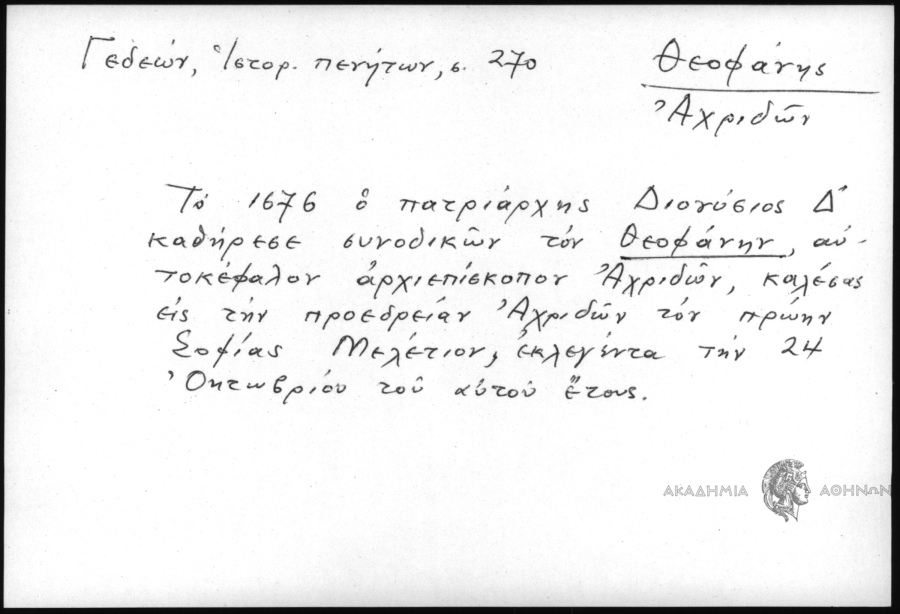 Γεδεών, Ἱστορ. πενήτων, σ. 270
Θεοφάνης
Ἀχριδῶν
Τὸ 1676 ὁ πατριάρχης Διονύσιος Δ΄
καθήρεσε συνοδικῶν τὸν Θεοφάνην, αὐ-
τοκέφαλον ἀρχιεπίσκοπον Ἀχριδῶν, καλέσας
εἰς τὴν προεδρείαν Ἀχριδῶν τὸν πρώην
Σοφίας Μελέτιον, ἐκλεγέντα τὴν 24
Ὀκτωβρίου τοῦ αὐτοῦ ἔτους.
ΑΚΑΔΗΜΙΑ ΑΘΗΝΩΝ